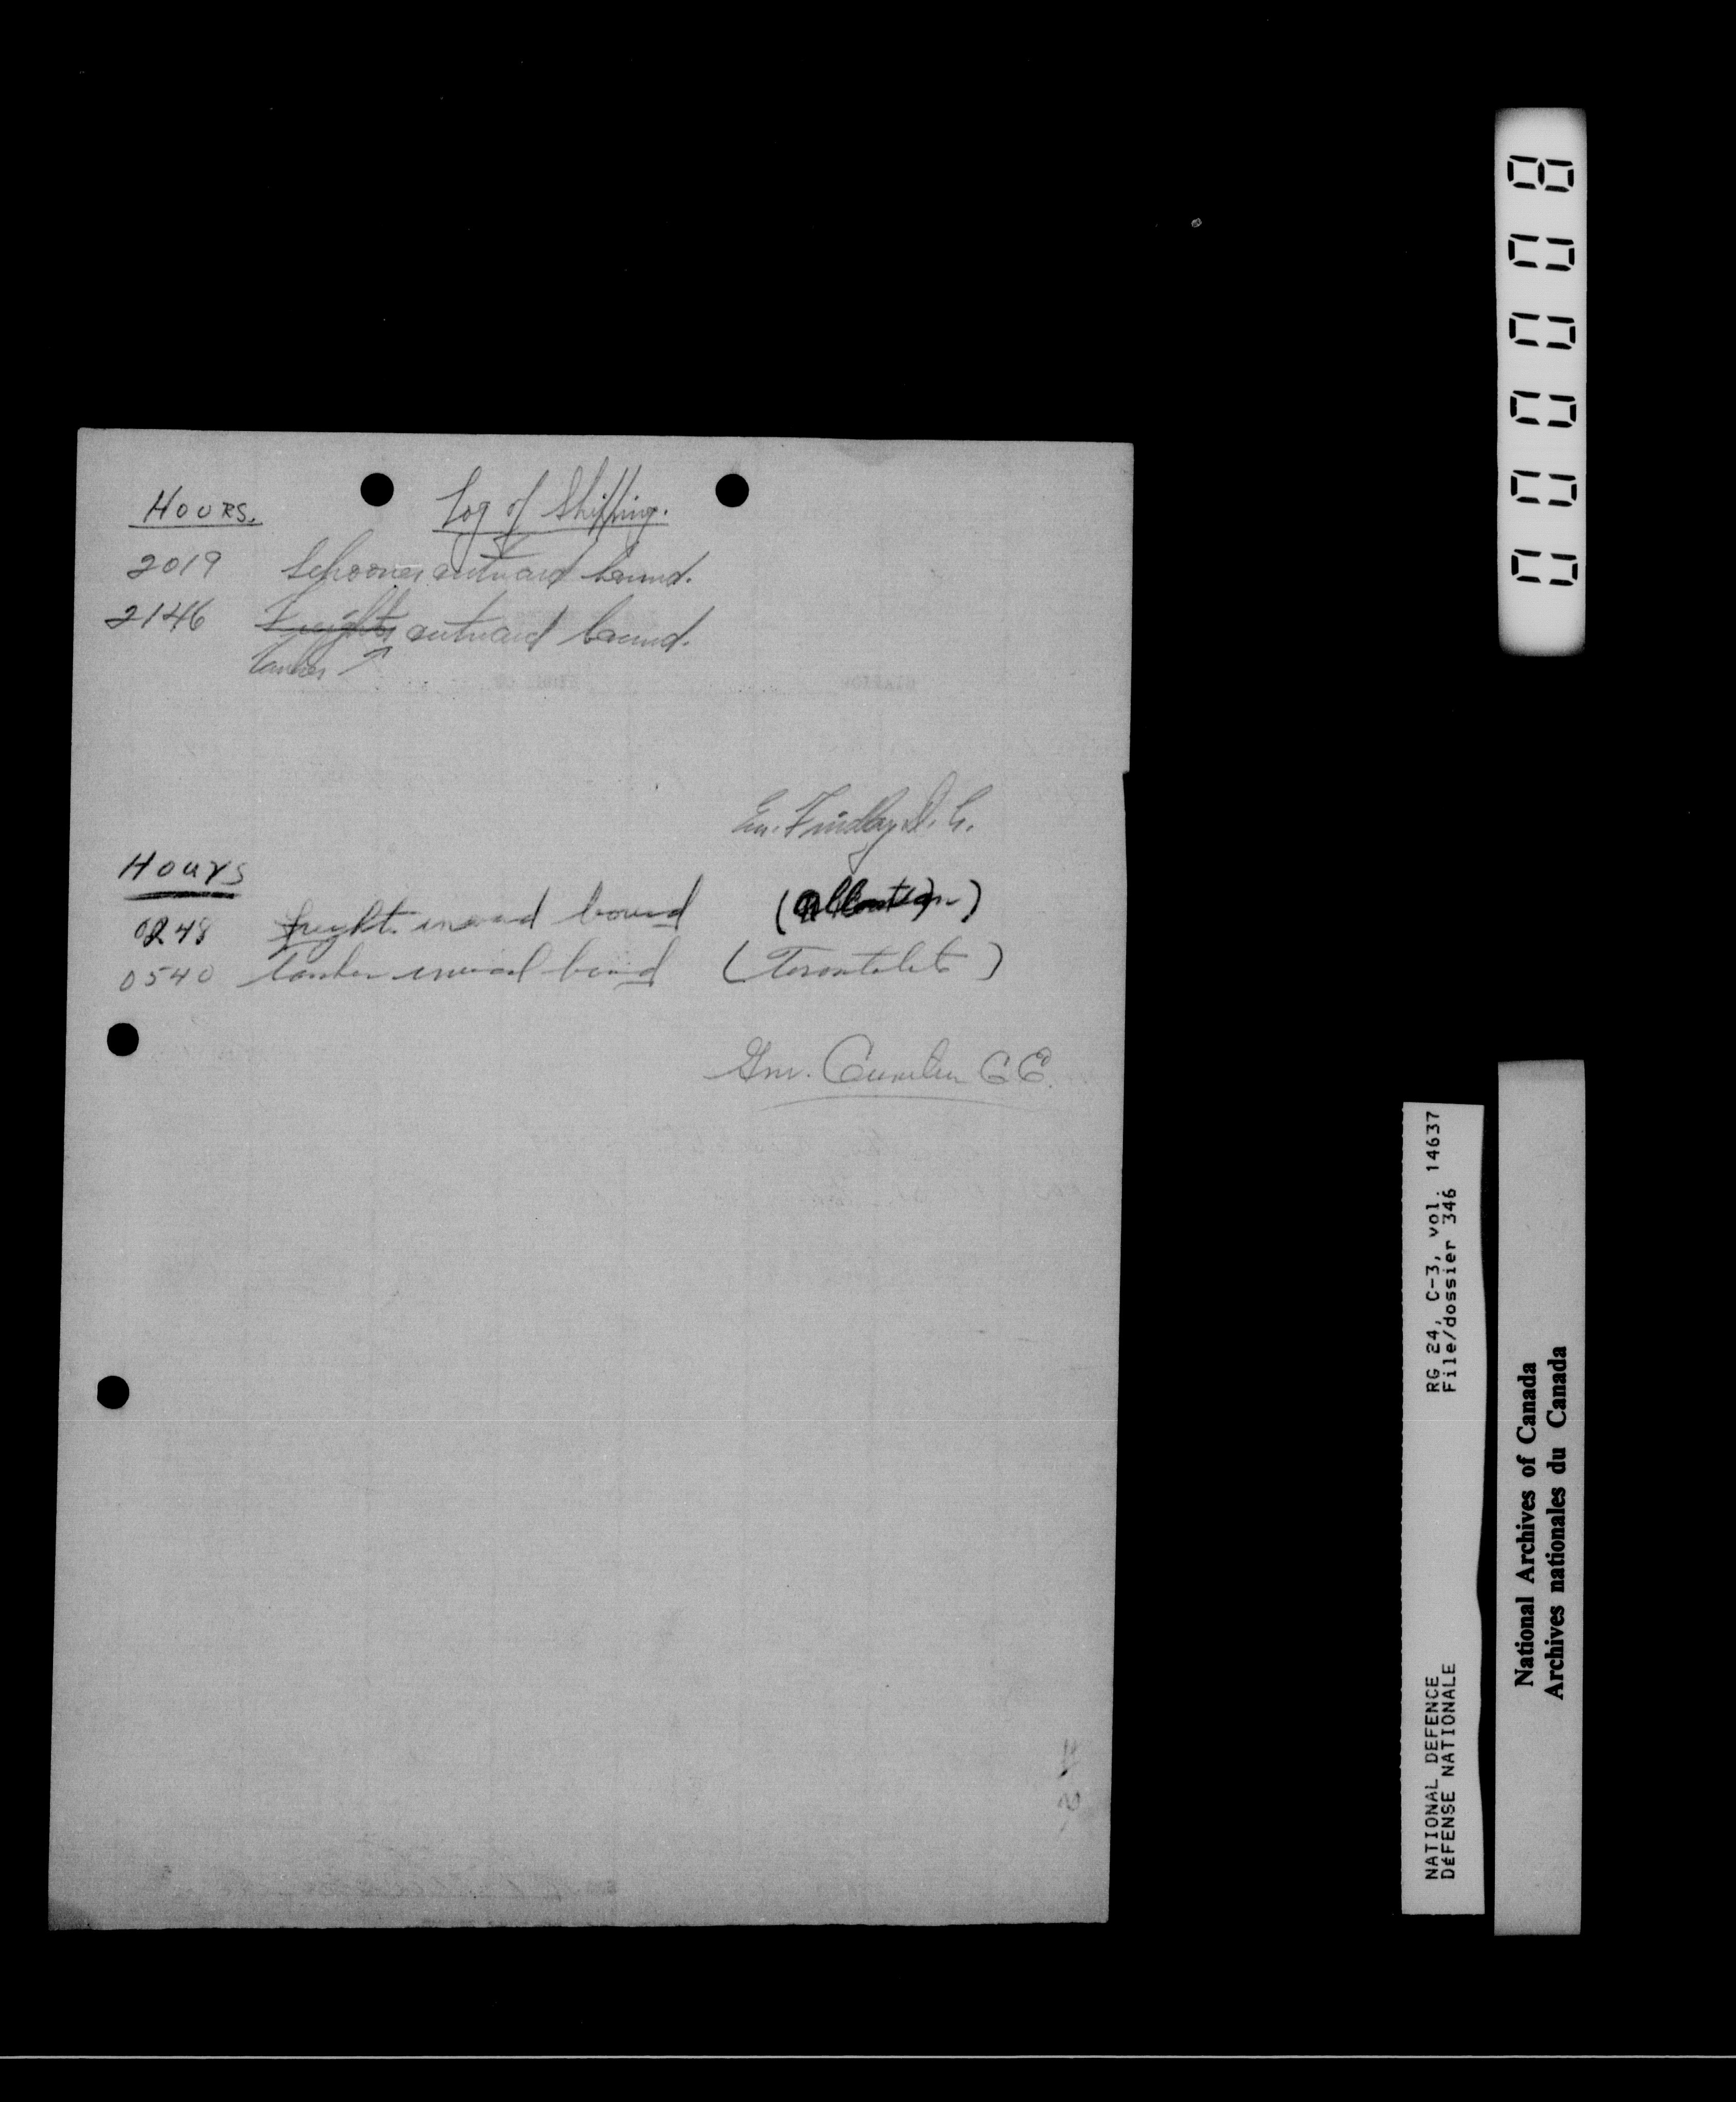 HOURS. Log of Shipping.
2019 Schooner outward bound.
2146 Freighter outward bound.
tanker ↗
Gn. Findlay D. G.
Hours
0248 freight. inward bound
0540 tanker inward bound (Torontolite)
Gnr. C E.
000008
RG 24, C-3, vol. 14637
File/dossier 346
NATIONAL DEFENCE
DéFENSE NATIONALE
National Archives of Canada
Archives nationales du Canada